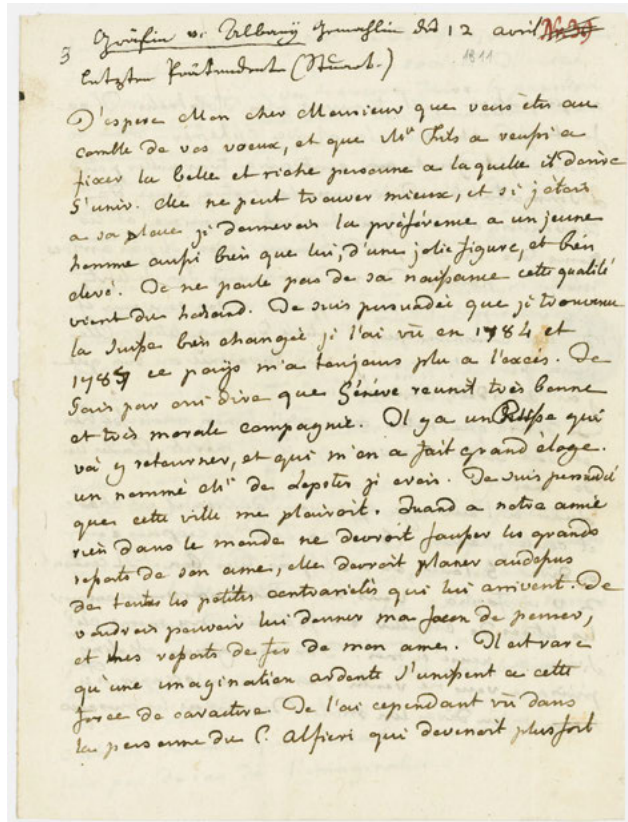 3 Gräfin v. Albany Gemahlin des 12 avril No 39
letzten Prätendent (Stuart.) 1811
J'espere Mon cher Monsieur que vous êtes au
comble de vos voeux, et que Mr Fils a reussi a
fixer la belle et riche personne a laquelle il desire
s'unir. elle ne peut trouver mieux, et si j'étais
a sa place je donnerais la préférence a un jeune
homme aussi bien que lui, d'une jolie figure, et bien
elevé. Je ne parle pas de sa naissance cette qualité
vient du hasard. Je suis persuadée que je trouverai
la Suisse bien changée je l'ai vû en 1784 et
1785 ce pays m'a toujours plu a l'excés. Je
sais par oui dire que Génève reunit très bonne
et très morale compagnie. Il y a un Russe qui
va y retourner, et qui m'en a fait grand éloge.
un nommé Mr de je crois. Je suis persuadé
que cette ville me plairoit. quand a notre amie
rien dans le monde ne devroit fausser les grands
resorts de son ame, elle devroit planer audessus
de toutes les petites contrarietés qui lui arrivent. Je
voudrois pouvoir lui donner ma facon de penser,
et mes resorts de fer de mon ame. Il est rare
qu'une imagination ardente s'unissent a cette
force de caractère. Je l'ai cependant vû dans
la personne du C. Alfieri qui devenoit plus fort